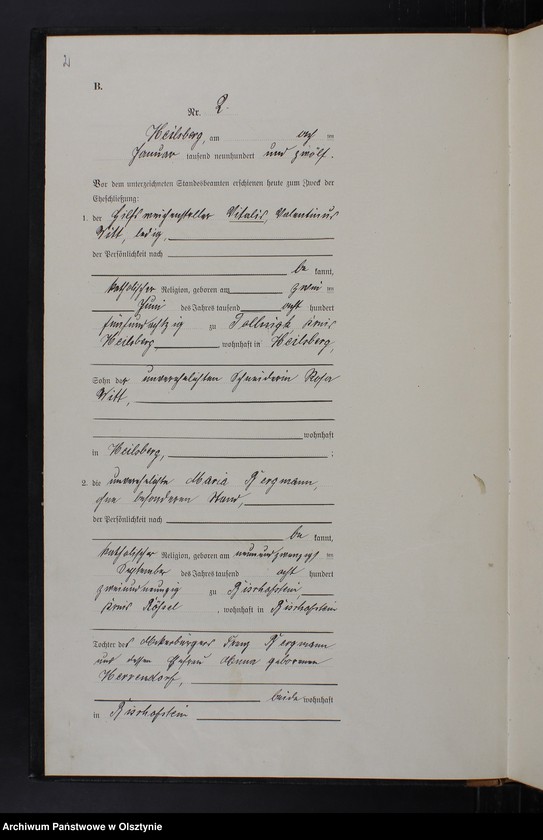 2
B.
Nr. 2.
Heilsberg, am acht ten
Januar tausend neunhundert und zwölf.
Vor dem unterzeichneten Standesbeamten erschienen heute zum Zweck der
Eheschließung:
1. der Hilfsweichensteller Vitalis, Valentinus
Witt, ledig,
der Persönlichkeit nach
be kannt,
katholischer Religion, geboren am zwei ten
Juni des Jahres tausend acht hundert
fünfundachtzig zu Tollnigk, Kreis
Heilsberg, wohnhaft in Heilsberg,
Sohn der unverehelichten Schneiderin Rosa
Witt,
wohnhaft
in Heilsberg, ;
2. die unverehelichte Maria Bergmann,
ohne besonderen Stand,
der Persönlichkeit nach
be kannt,
katholischer Religion, geboren am neunundzwanzigsten
September des Jahres tausend acht hundert
zweiundneunzig zu Bischofstein,
Kreis Rössel, wohnhaft in Bischofstein
Tochter des Ackerbürgers Franz Bergmann
und dessen Ehefrau Anna geborenen
Herrendorf,
beide wohnhaft
in Bischofstein
Archiwum Państwowe w Olsztynie